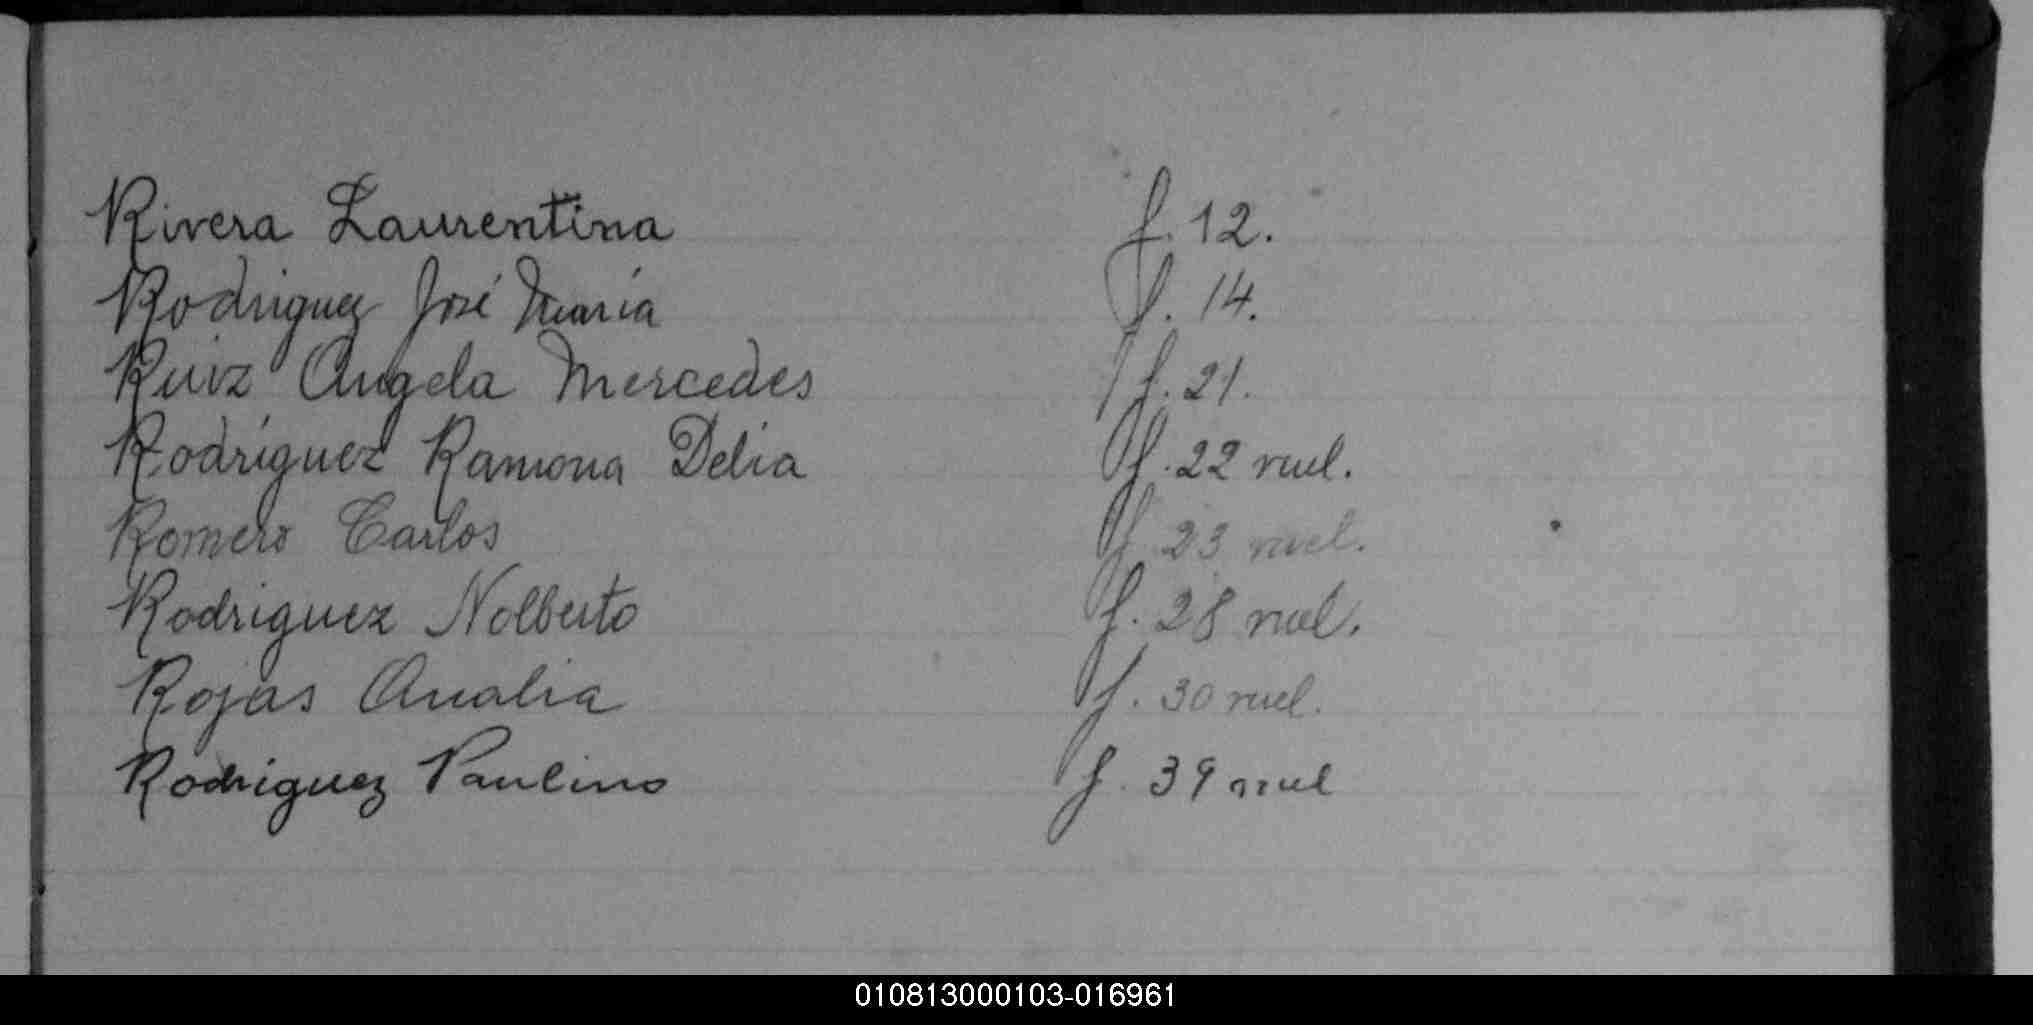 Rivera Laurentina f. 12.
Rodriguez José María f. 14.
Ruiz Angela Mercedes f. 21.
Rodríguez Ramona Delia f. 22 vuel.
Romero Carlos f. 23 vuel.
Rodriguez Nolberto f. 28 vuel.
Rojas Analia f. 30 vuel.
Rodriguez Paulino f. 39 vuel
010813000103-016961